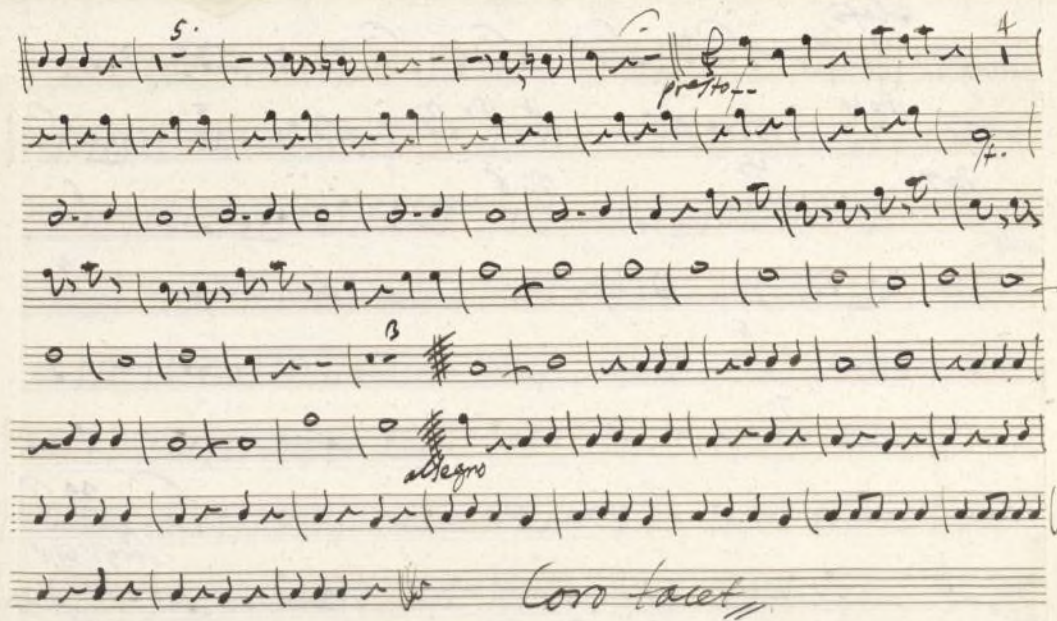 5.
4
presto
f.
3
allegro
Coro tacet